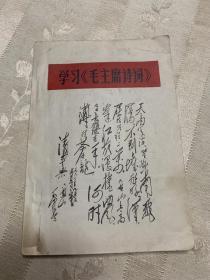 学习《毛主席诗词》
天高云淡望断南飞
雁不到长城非好汉
屈指行程二万六盘山上高
峰红旗漫卷西风
今日长缨在手何时
缚住苍龙
清平乐